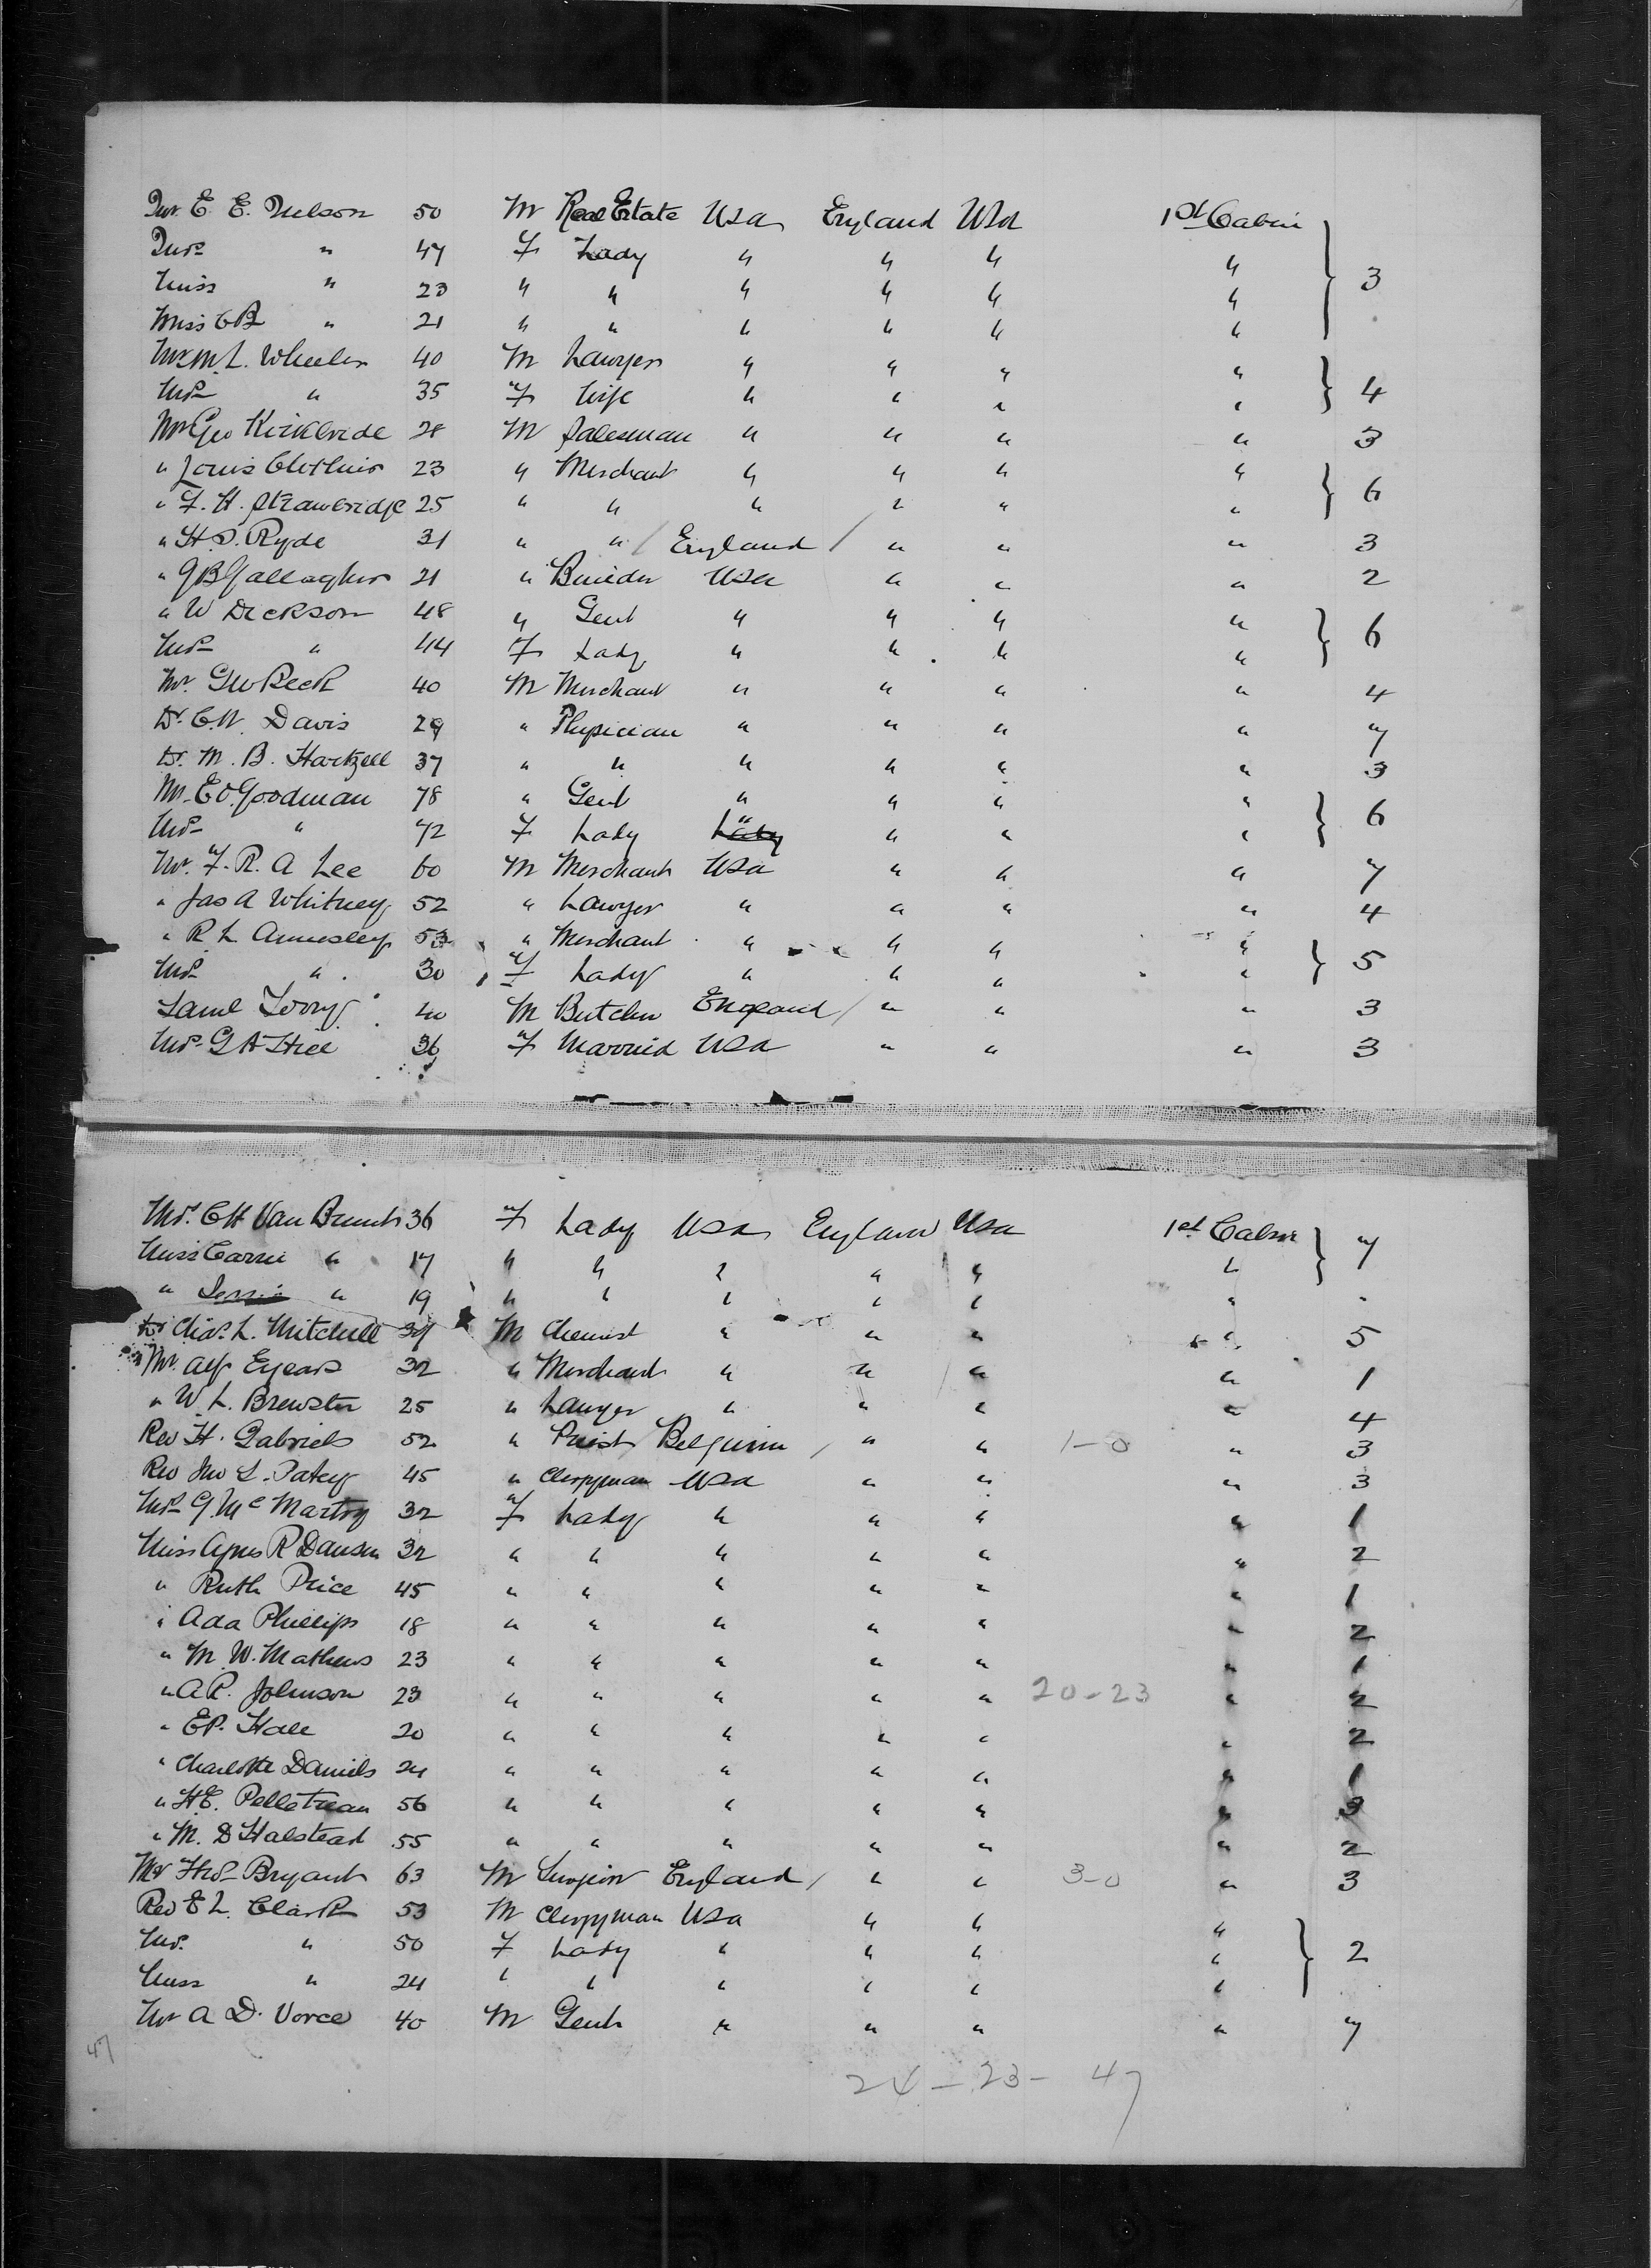 Mr. E. E. Nelson 50 M Real Estate USA England USA 1st Cabin
Mrs " 47 F Lady " " " " } 3
Miss " 23 " " " " " "
Miss C B " 21 " " " " " "
Mr. M. L. Wheeler 40 M Lawyer " " " "
Mrs " 35 F Wife " " " " } 4
Mr Geo Kirkbride 28 M Salesman " " " " 3
" Louis Clothier 23 " Merchant " " " "
" F. H. Strawbridge 25 " " " " " " } 6
" H. S. Ryde 31 " " / England / " " " 3
" G B Gallagher 21 " Builder USA " " " 2
" W Dickson 48 " Gent " " " "
Mrs " 44 F Lady " " " " } 6
Mr. Geo Beck 40 M Merchant " " " " 4
Dr. C. N. Davis 29 " Physician " " " " 7
Dr. M. B. Hartzell 37 " " " " " " 3
Mr. E O. Goodman 78 " Gent " " " "
Mrs " 72 F Lady Lady " " " " } 6
Mr. F. R. A Lee 60 M Merchant USA " " " 7
" Jas A Whitney 52 " Lawyer " " " " 4
" R L Annesley 53 " Merchant " " " "
Mrs " 30 F Lady " " " " } 5
Saml 40 M Butcher England / " " " 3
Mrs G A Hill 36 F Married USA " " " 3
Mrs. C H Van Brunt 36 F Lady USA England USA 1st Cabin
Miss Carrie " 17 " " " " " " } 7
" Jessie " 19 " " " " " "
Dr Chas. L. Mitchell 37 M Chemist " " " " 5
Mr. Alf Eyears 32 " Merchant " " " " 1
" W. L. Brewster 25 " Lawyer " " " " 4
Rev H. Gabriels 52 " Priest / Belgium / " " 1-0 " 3
Rev Jno L. Patey 45 " Clergyman USA " " " 3
Mrs G. Mc Martry 32 F Lady " " " " 1
Miss Agnes R Dawson 32 " " " " " " 2
" Ruth Price 45 " " " " " " 1
" Ada Phillips 18 " " " " " " 2
" M. W. Mathews 23 " " " " " " 1
" A R. Johnson 23 " " " " " 20-23 " 2
" E P. Hall 20 " " " " " " 2
" Charlotte Daniels 24 " " " " " " 1
" H. E. Pelletreau 56 " " " " " " 3
" M. D Halstead 55 " " " " " " 2
Mr Thos Bryant 63 M Surgeon England / " " 3-0 " 3
Rev E L. Clark 53 M Clergyman USA " " "
Mrs. " 50 F Lady " " " " } 2
Miss " 24 " " " " " "
Mr A D. Vorce 40 M Gent " " " " 7
47
24 - 23 - 47